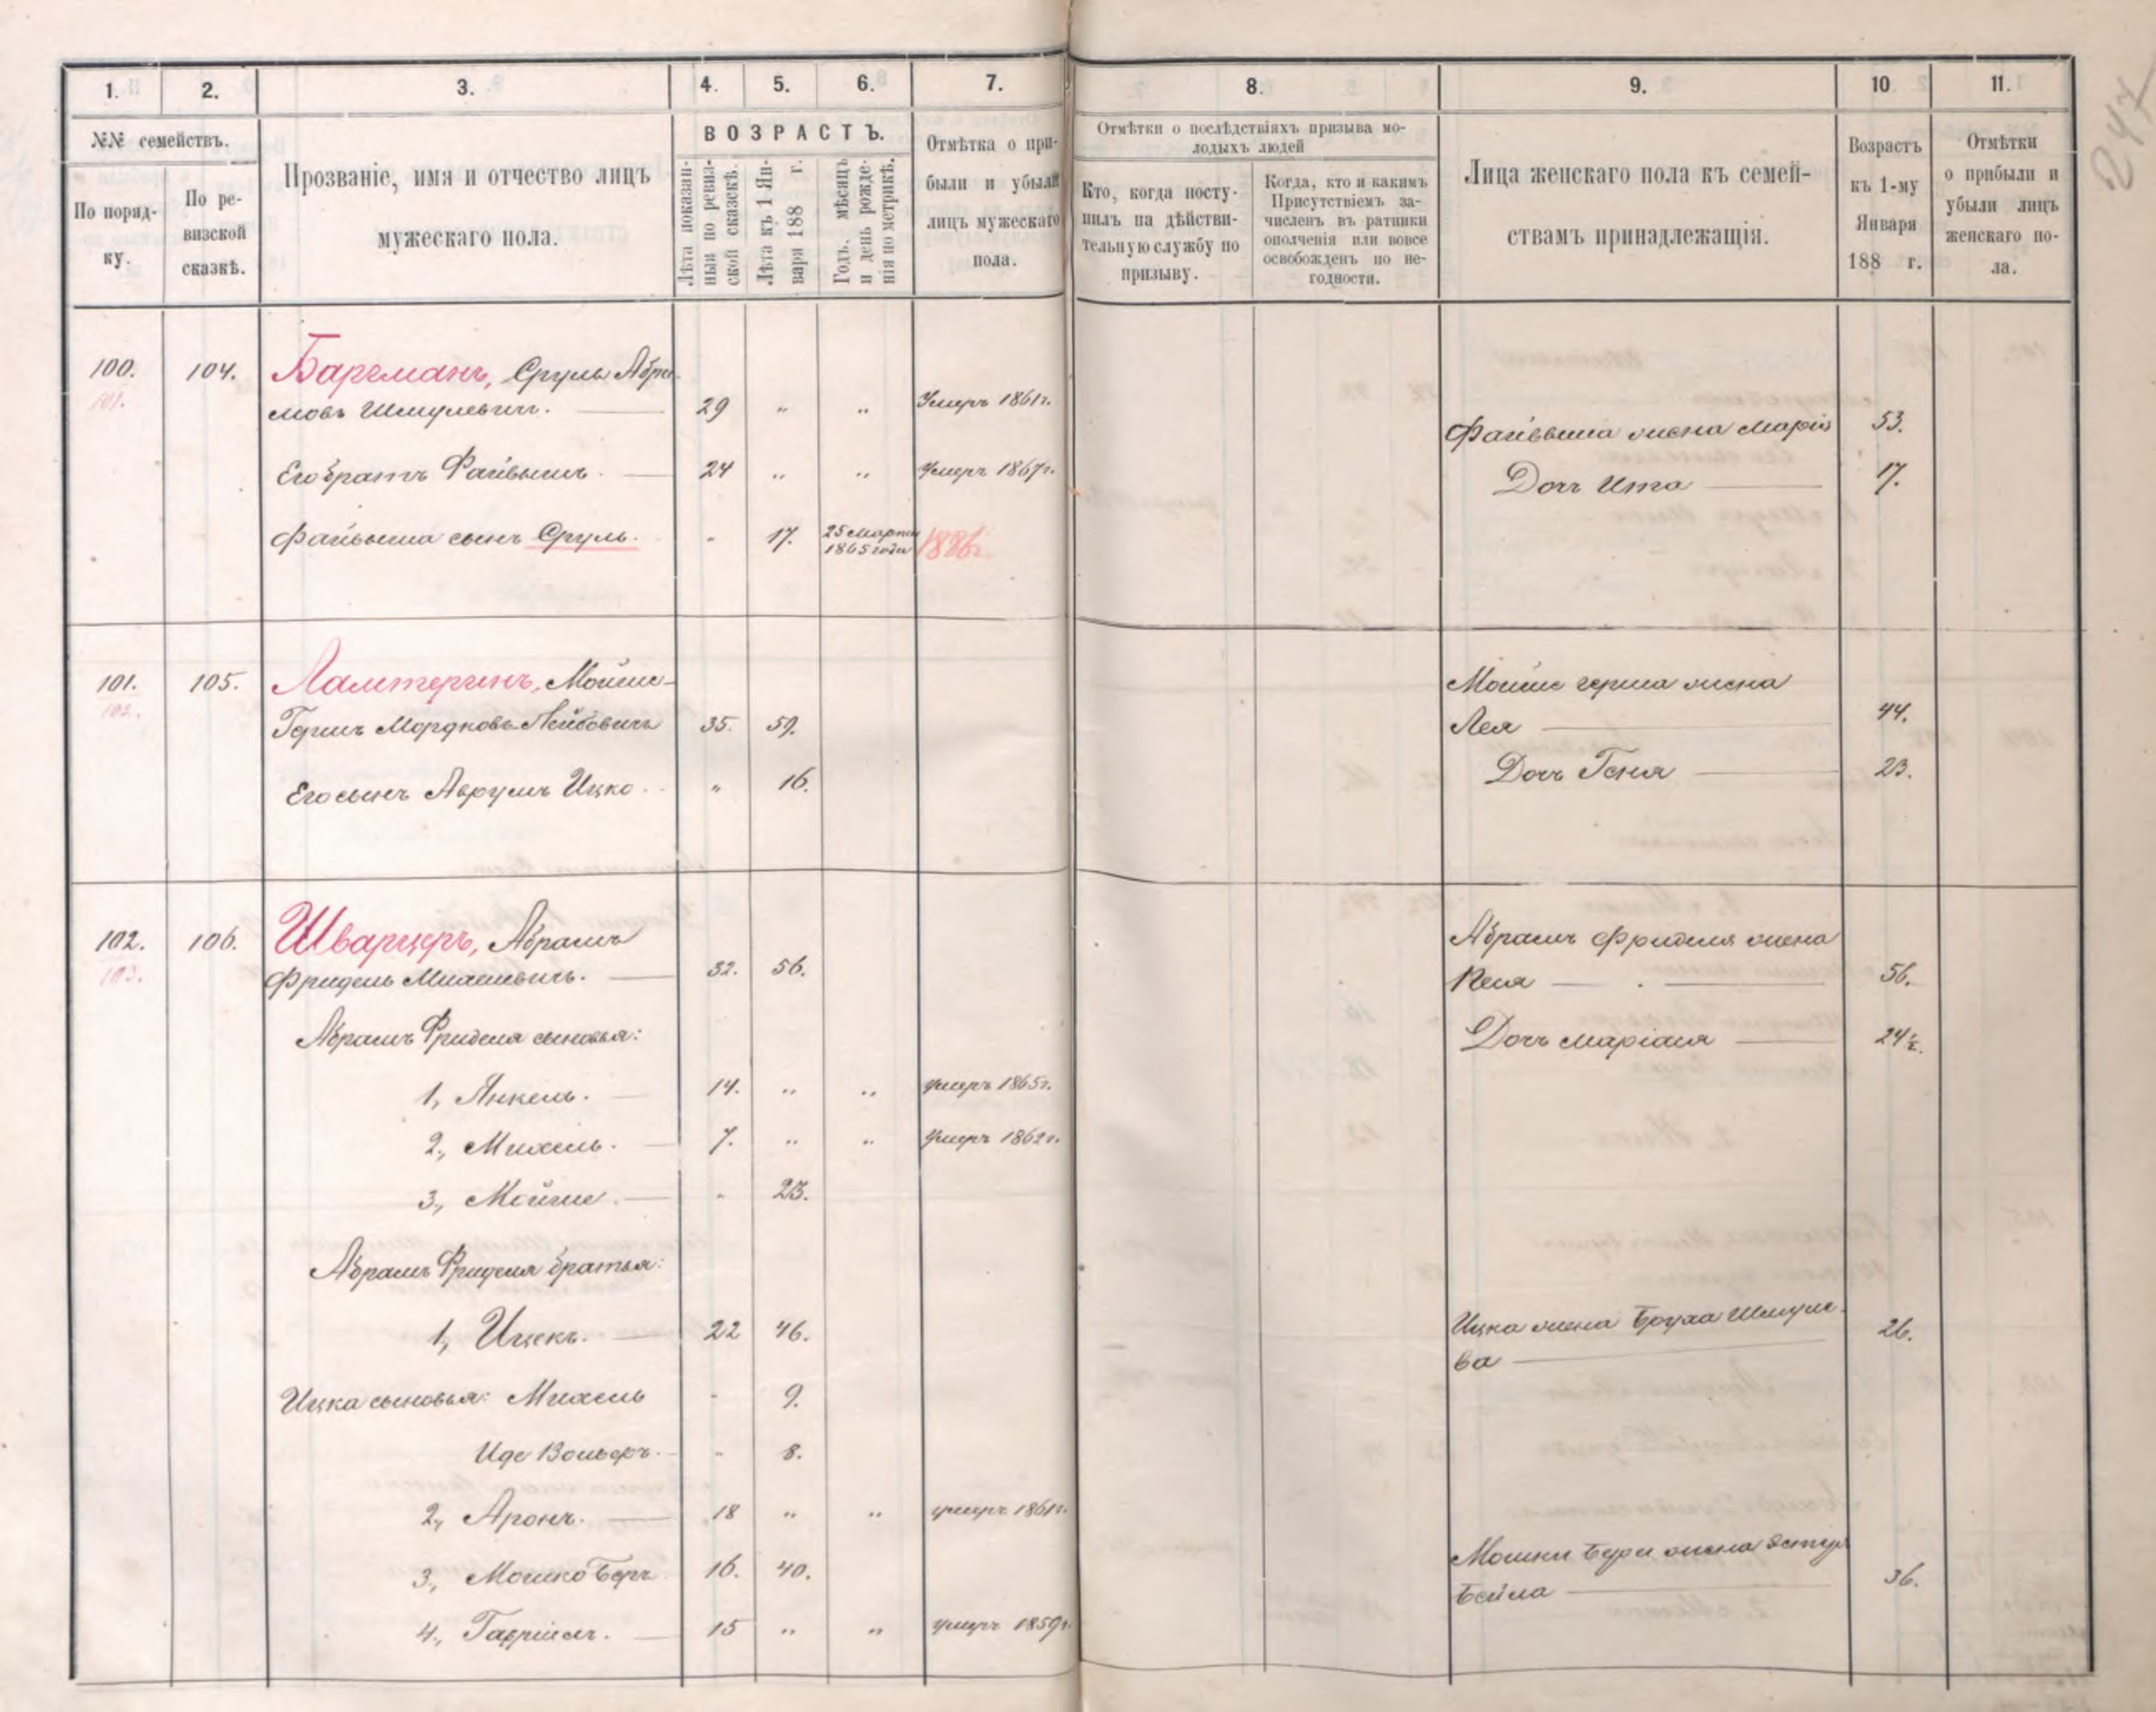 247
1. 2. 3. 4. 5. 6. 7. 8. 9. 10 11.
№№ семействъ.
По поряд-
ку.
По ре-
визской
сказкѣ.
Прозваніе, имя и отчество лицъ
мужескаго пола.
ВОЗРАСТЪ.
Лѣта показан-
ныя по ревиз-
ской сказскѣ.
Лѣта къ 1 Ян-
варя 188 г.
Годъ, мѣсяцъ
и день рожде-
нія по метрикѣ.
Отмѣтка о при-
были и убыли
лицъ мужескаго
пола.
Отмѣтки о послѣдствіяхъ призыва мо-
лодыхъ людей
Кто, когда посту-
пилъ на дѣйстви-
тельную службу по
призыву.
Когда, кто и какимъ
Присутствіемъ за-
численъ въ ратники
ополченія или вовсе
освобожденъ по не-
годности.
Лица женскаго пола къ семей-
ствамъ принадлежащія.
Возрастъ
къ 1-му
Января
188 г.
Отмѣтки
о прибыли и
убыли лицъ
женскаго по-
ла.
100. 104. Баргманъ, Сруль Абра-
101. мовъ Шмулевичъ. 29 " " Умеръ 1861 г.
Файвыша жена Марія 53.
Его братъ Файвышъ. 24 " " Умеръ 1867 г.
Дочь Ита 17.
Файвыша сынъ Сруль. " 17. 25 Марта
1865 года 1886 г.
101. 105. Ламтергинъ, Мойше-
102. Гершъ Мордковъ Лейбовичъ 35. 59.
Мойше Герша жена
Лея 44.
Его сынъ Аврумъ Ицко. " 16.
Дочь Геня 23.
102. 106. Шварцеръ, Абрамъ
103. Фридель Михелевичъ. 32. 56.
Абрамъ Фриделя жена
Песя 56.
Абрамъ Фриделя сыновья:
Дочь Маріася 24½.
1, Янкель. 14. " " умеръ 1865 г.
2, Михель. 7. " " Умеръ 1862 г.
3, Мойше. " 23.
Абрамъ Фриделя братья:
1, Ицекъ. 22 46.
Ицка жена Бруха Шмуле-
ва 26.
Ицка сыновья: Михель - 9.
Иде Вольфъ. " 8.
2, Аронъ. 18 " " умеръ 1861 г.
3, Мошко Беръ 16. 40.
Мошки Бера жена Эстер
Бейла 36.
4, Гавріилъ. 15 " " умеръ 1859 г.